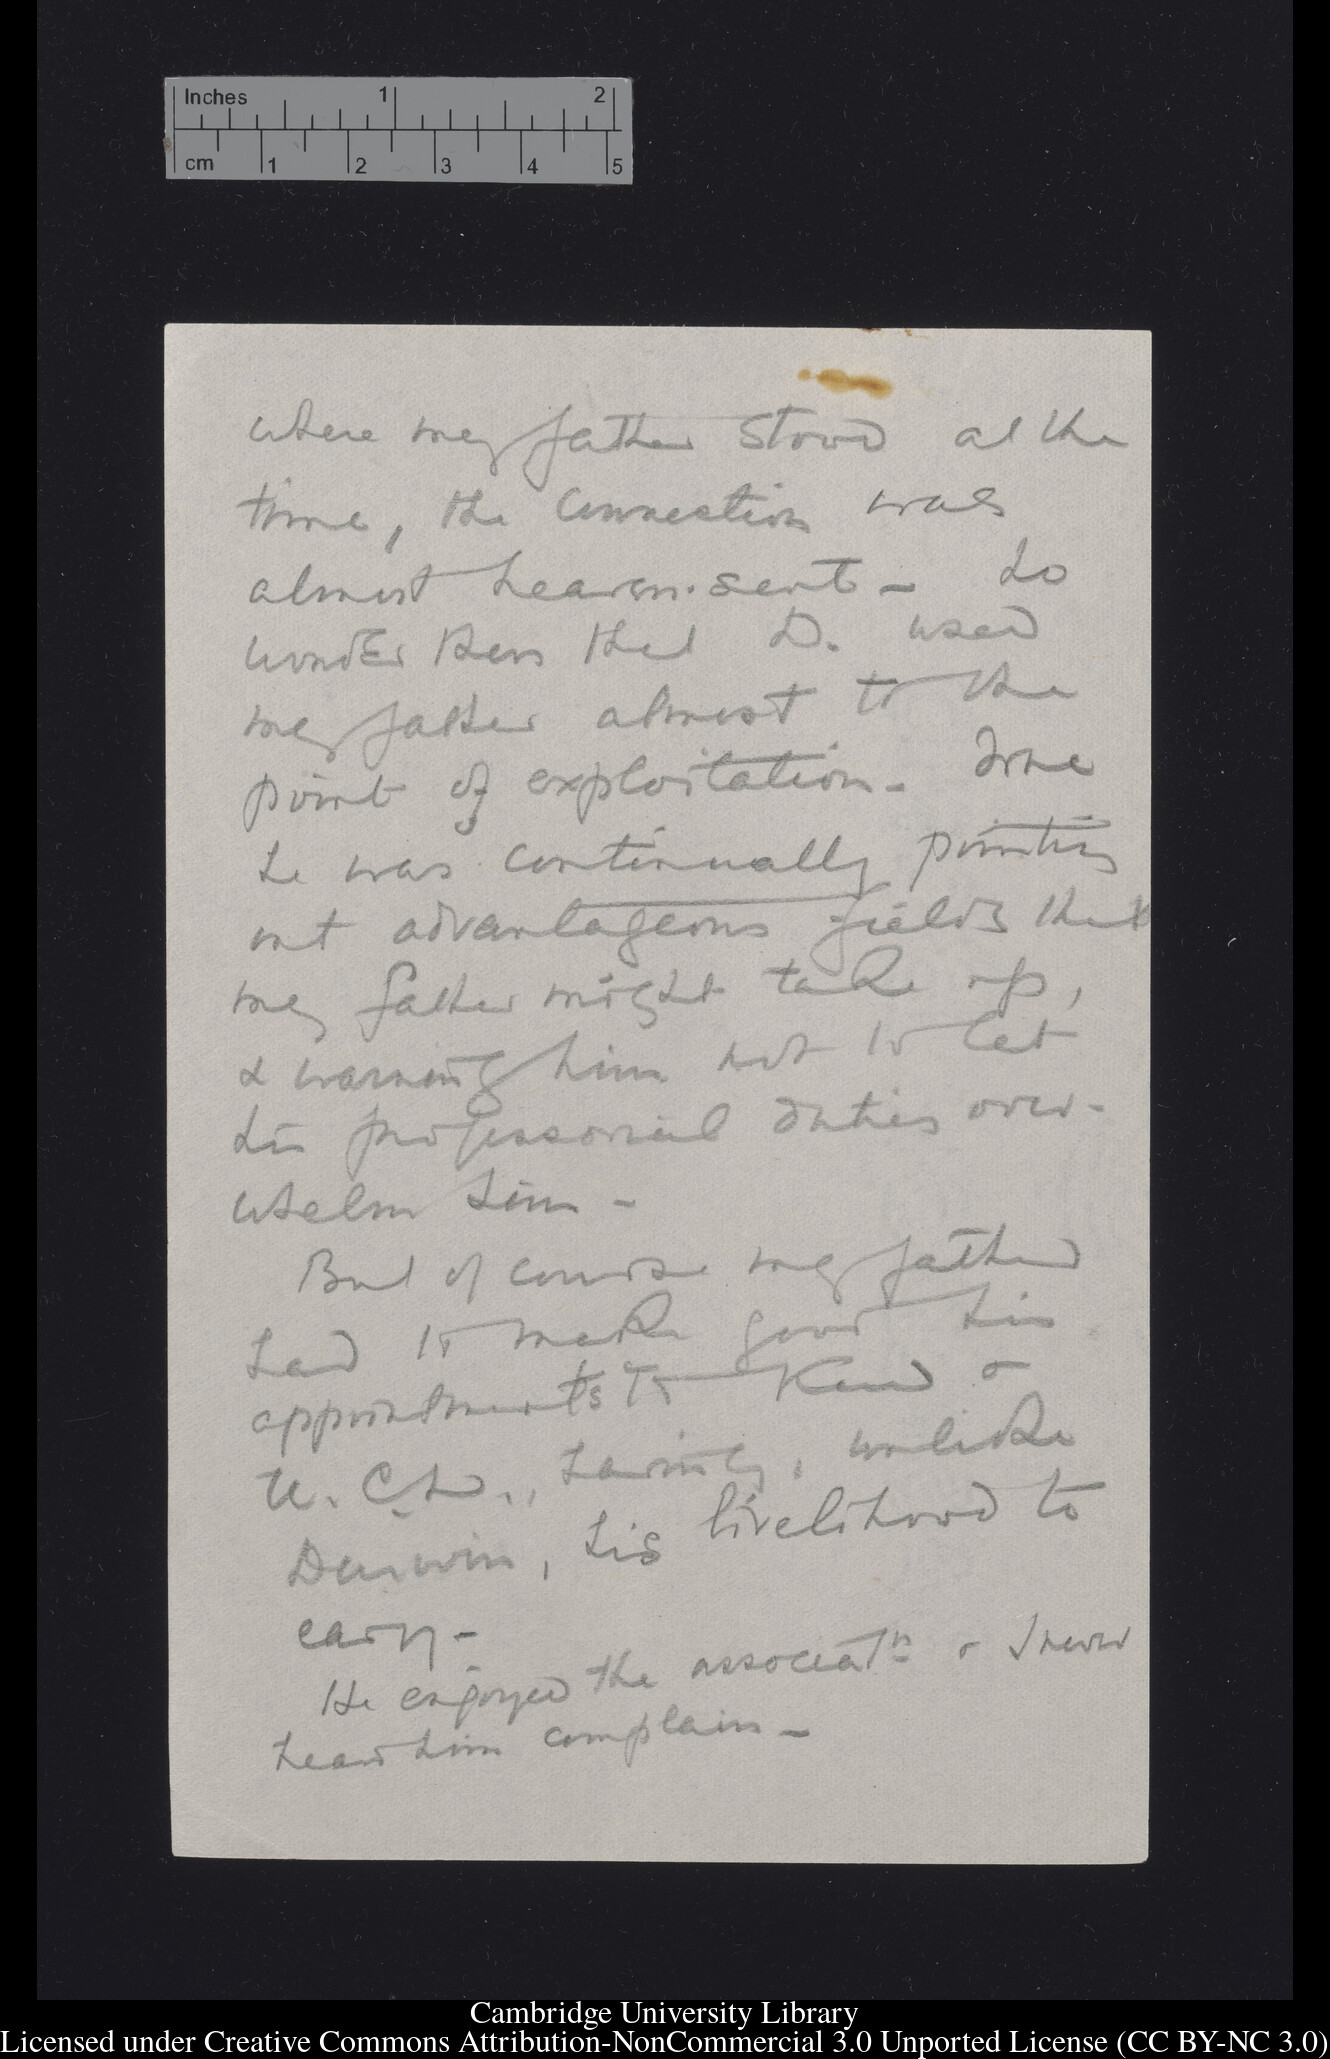 Inches 1 2
cm 1 2 3 4 5
where my father stood at the
time, the connection was
almost heaven-sent - No
wonder then that D. used
my father almost to the
point of exploitation - True
he was continually pointing
out advantageous fields that
my father might take up,
& warning him not to let
his professorial duties over-
whelm him -
But of course my father
had to make good his
appointments to Kew &
U.C.L., having, unlike
Darwin, his livelihood to
earn -
He enjoyed the associatn & I never
heard him complain -
Cambridge University Library
Licensed under Creative Commons Attribution-NonCommercial 3.0 Unported License (CC BY-NC 3.0)